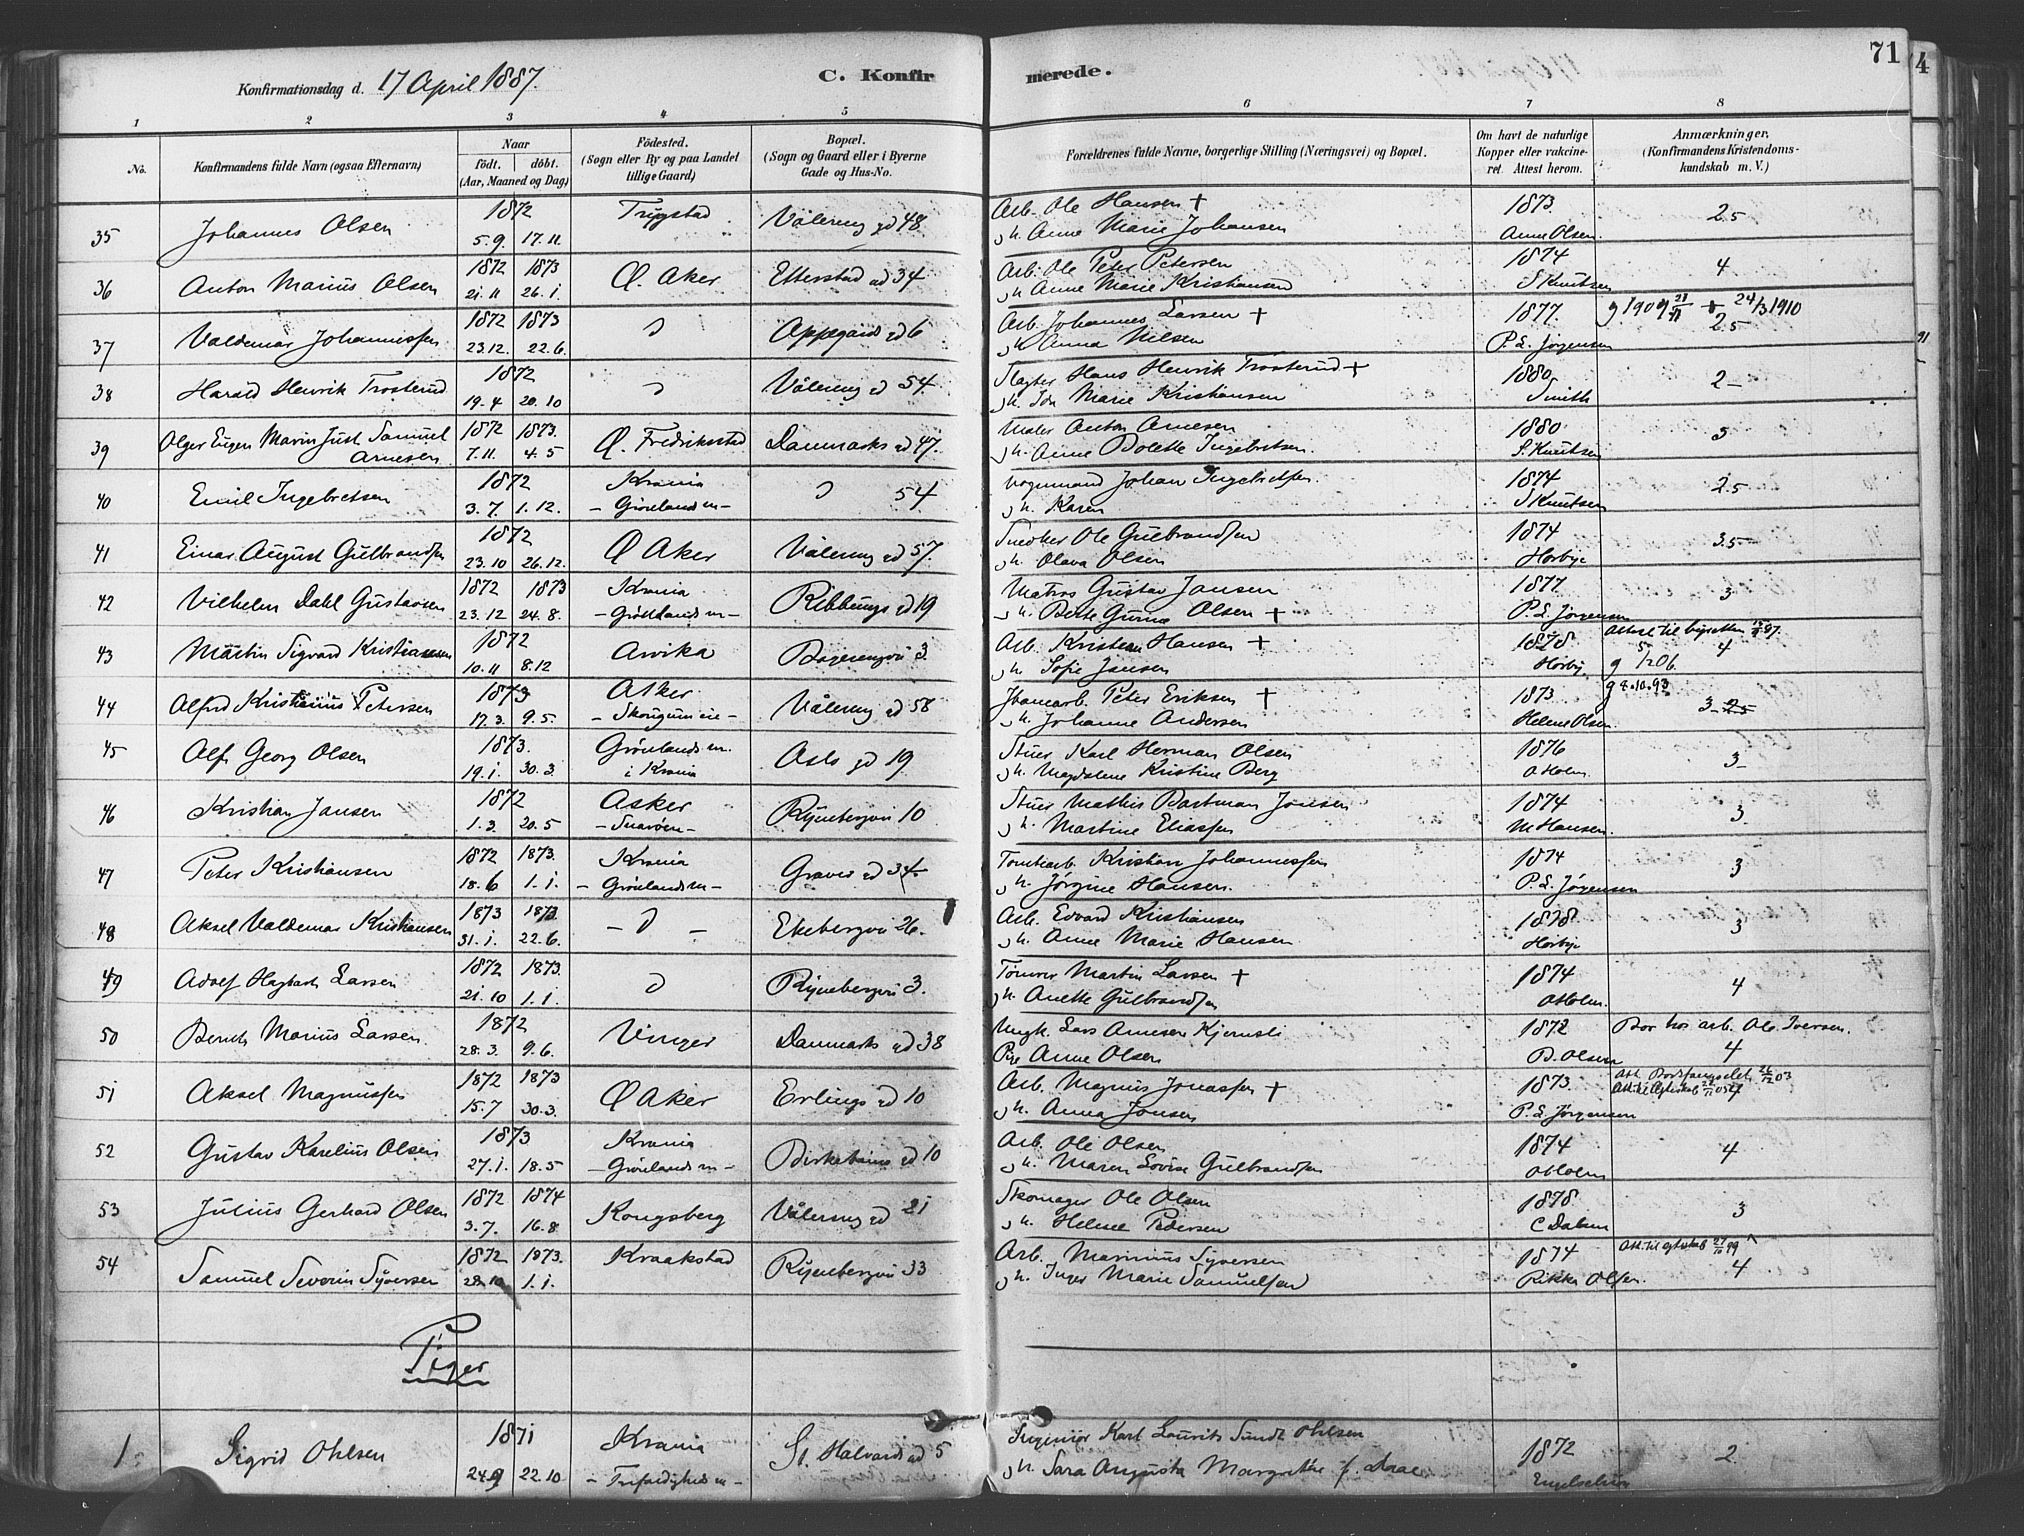 71
4
Konfirmationsdag d. 17 April 1887.
C. Konfirmerede.
1 2 3 4 5 6 7 8
No. Konfirmandens fulde Navn (ogsaa Efternavn) Naar født. døbt. (Aar, Maaned og Dag) Fødested. (Sogn eller By og paa Landet tillige Gaard) Bopæl. (Sogn og Gaard eller i Byerne Gade og Hus-No. Forældrenes fulde Navne, borgerlige Stilling (Næringsvei) og Bopæl. Om havt de naturlige Kopper eller vakcineret. Attest herom. Anmærkninger, (Konfirmandens Kristendomskundskab m. V.)
35 Johannes Olsen 1872 5.9. 17.11. Trygstad Vålereng gd 48 Arb. Ole Hansen + h. Anne Marie Johansen 1873 Anne Olsen 2.5
36 Anton Marius Olsen 1872 21.11 1873 26.1. Ø. Aker Etterstad gd 34 Arb. Ole Peter Petersen h. Anne Marie Kristiansen 1874 S Knutsen 4
37 Valdemar Johannessen 1872 23.12. 1873 22.6. d Oppegårds gd 6 Arb. Johannes Larsen + h. Anna Nilsen 1877. P. L. Jørgensen g 1909 21/11 + 24/3 1910 2.5
38 Harald Henrik Trosterud 1872 19.4 20.10 d Vålereng gd 54 Slagter Hans Henrik Trosterud + h. Ida Marie Kristiansen 1880 Smith 2-
39 Olger Eugen Marin Just Samuel Arnesen 1872 7.11. 1873. 4.5 Ø. Fredrikstad Danmarks gd 47. Maler Anton Arnesen h. Anne Bolette Ingebretsen. 1880 S. Knutsen 3
40 Emil Ingebretsen 1872 3.7. 1.12. Krania - Grønlands m - d 54 Vognmand Johan Ingebretsen h. Karen 1874 S Knutsen 2.5
41 Einar August Gulbrandsen 1872 23.10 26.12. Ø Aker Vålereng gd 57. Snedker Ole Gulbrandsen h. Olava Olsen 1874 Hørbye 3.5
42 Vilhelm Dahl Gustavsen 1872 23.12 1873 24.8. Krania - Grønlands m - Ribbungs gd 19 Matros Gustav Jansen h. Berte Gurine Olsen + 1877 P. L. Jørgensen 3
43 Martin Sigvard Kristiansen 1872 10.11 8.12 Arvika Bøgerengvei 3 Arb. Kristen Hansen + h. Sofie Jansen 1878 Hørby 4
44 Alfred Kristianus Petersen 1873 17.3. 9.5. Asker - Skougum eie - Vålereng gd 58 Jbanearb. Peter Eriksen + h. Johanne Andersen 1873 Helene Olsen g 8.10.93 3-
45 Alf Georg Olsen 1873. 19.1. 30.3. Grønlands m. i Krania Oslo gd 19 Stuer Karl Herman Olsen h. Magdalene Kristine Berg 1876 O Holm 3-
46 Kristian Jansen 1872 1.3. 20.5 Asker - Snarøen - Ryenbergvei 10 Stuer Mathis Bartman Jansen h. Martine Eliassen 1874 M Hansen. 3
47 Peter Kristiansen 1872 18.6 1873. 1.1. Krania - Grønlands m - Graver gd 34 Tomtearb. Kristian Johannessen h. Jørgine Hansen. 1874 P. L. Jørgensen 3
48 Aksel Valdemar Kristiansen 1873 31.1. 1873. 22.6. - d - Ekebergvei 26. Arb. Edvard Kristiansen h. Anne Marie Hansen 1878 Hørbye 3
49 Adolf Hagbart Larsen 1872 21.10 1873. 1.1. d Ryenbergvei 3. Tømrer Martin Larsen + h. Anette Gulbrandsen 1874 O Holm. 4
50 Bernt Marius Larsen. 1872 28.3. 9.6. Vinger Danmarks gd 38 Ungk. Lars Arnesen Kjernsli Pige Anne Olsen 1872 B. Olsen Bor hos arb. Ole Iversen. 4
51 Aksel Magnussen 1872 15.7 1873 30.3. Ø Aker Erlings gd 10 Arb. Magnus Jonassen + h. Anna Jonsen 1873 P. L. Jørgensen Att. Bodsfængslet 26/12 03
52 Gustav Karelius Olsen 1873 27.1. 18.5 Krania - Grønlands m - Birkebeins gd 10 Arb. Ole Olsen h. Maren Lovise Gulbrandsen 1874 O Holm 4
53 Julius Gerhard Olsen 1872 3.7. 1874 16.8 Kongsberg Vålereng gd 21 Skomager Ole Olsen h. Helene Pedersen 1878 C Dalen 3
54 Samuel Severin Syversen 1872 28.10 1873. 1.1. Kraakstad Ryenbergvei 33 Arb. Marinius Syversen h. Inger Marie Samuelsen 1874 Rikka Olsen Att. til egteskab 27/10 99 4
Piger
1 Sigrid Ohlsen 1871 24.9 22.10 Krania - Trefoldigheds m - St. Halvards gd 5 Ingeniør Karl Laurits Sundt Ohlsen h. Sara Augusta Margrethe f. Aas 1872 Engelschiøn 2